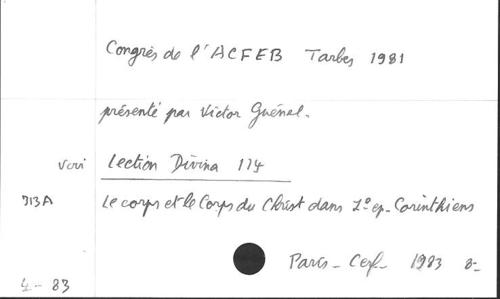 Congrès de l'ACFEB Tarbes 1981
présenté par Victor Guénel.
Lection Divina 114
713A Le corps et le Corps du Christ dans 1º ep. Corinthiens
Paris - Cerf - 1983 8-
4 - 83